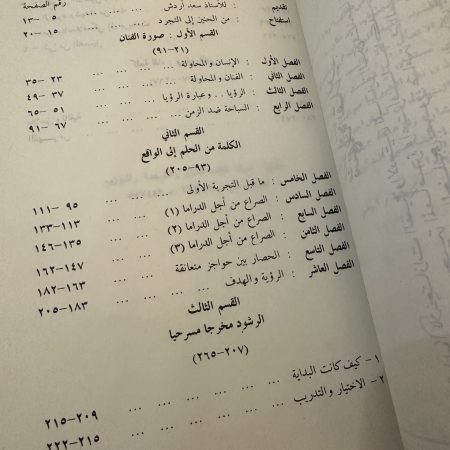 رقم الصفحة
تقديم : للأستاذ سعد أردش ... ... ... ٥ -١٣
استفتاح : من الحنين إلى التجرد ... ... ... ١٥ -٢٠
القسم الأول : صورة الفنان
(٢١-٩١)
الفصل الأول : الإنسان والمحاولة ... ... ... ٢٣ -٣٥
الفصل الثاني : الفنان والمحاولة ... ... ... ٣٧ -٤٩
الفصل الثالث : الرؤيا .. وعبارة الرؤيا ... ... ... ٥١ -٦٥
الفصل الرابع : السباحة ضد الزمن ... ... ... ٦٧ -٩١
القسم الثاني
الكلمة من الحلم إلى الواقع
(٩٣-٢٠٥)
الفصل الخامس : ما قبل التجربة الأولى ... ... ... ٩٥ -١١١
الفصل السادس : الصراع من أجل الدراما (١) ... ... ١١٣-١٣٣
الفصل السابع : الصراع من أجل الدراما (٢) ... ... ١٣٥-١٤٦
الفصل الثامن : الصراع من أجل الدراما (٣) ... ... ١٤٧-١٦٢
الفصل التاسع : الحصار بين حواجز متعانقة ... ... ١٦٣-١٨٢
الفصل العاشر : الرؤية والهدف ... ... ... ١٨٣-٢٠٥
القسم الثالث
الرشود مخرجا مسرحيا
(٢٠٧-٢٦٥)
١ - كيف كانت البداية ... ... ... ٢٠٩-٢١٥
٢ - الاختيار والتدريب ... ... ... ٢١٥-٢٢٢